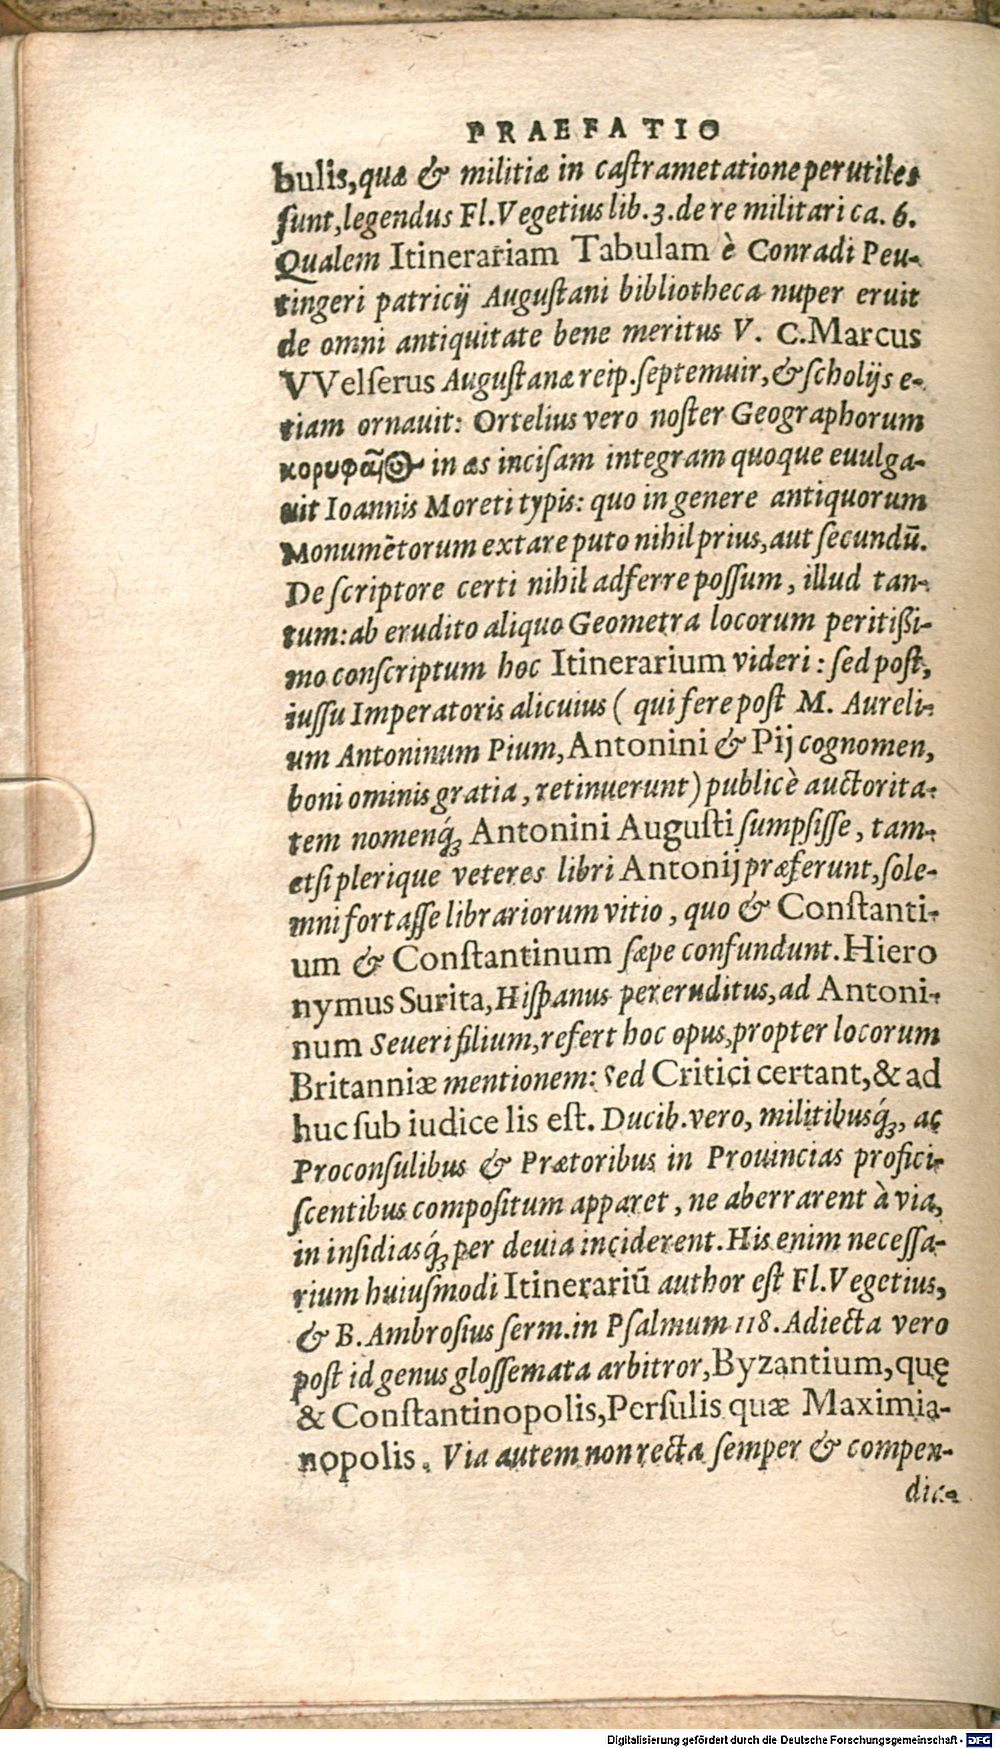 PRAEFATIO
bulis, quæ & militiæ in caſtrametatione perutiles
ſunt, legendus Fl. Vegetius lib. 3. de re militari ca. 6.
Qualem Itinerariam Tabulam è Conradi Peu-
tingeri patricij Auguſtani bibliotheca nuper eruit
de omni antiquitate bene meritus V. C. Marcus
VVelſerus Auguſtanæ reip. ſeptemuir, & ſcholijs e-
tiam ornauit: Ortelius vero noſter Geographorum
κορυφαῖος in æs inciſam integram quoque euulga-
uit Ioannis Moreti typis: quo in genere antiquorum
Monumētorum extare puto nihil prius, aut ſecundū.
De ſcriptore certi nihil adferre poſſum, illud tan-
tum: ab erudito aliquo Geometra locorum peritißi-
mo conſcriptum hoc Itinerarium videri: ſed poſt,
iuſſu Imperatoris alicuius ( qui fere poſt M. Aureli-
um Antoninum Pium, Antonini & Pij cognomen,
boni ominis gratia, retinuerunt) publicè auctorita-
tem nomenq́ꝫ Antonini Auguſti ſumpſiſſe, tam-
etſi plerique veteres libri Antonij præferunt, ſole-
mni fortaſſe librariorum vitio, quo & Conſtanti-
um & Conſtantinum ſæpe confundunt. Hiero
nymus Surita, Hiſpanus pereruditus, ad Antoni-
num Seueri filium, refert hoc opus, propter locorum
Britanniæ mentionem: ſed Critici certant, & ad
huc ſub iudice lis eſt. Ducib. vero, militibusq́ꝫ, ac
Proconſulibus & Prætoribus in Prouincias profici-
ſcentibus compoſitum apparet, ne aberrarent à via,
in inſidiasq́ꝫ per deuia inciderent. His enim neceſſa-
rium huiuſmodi Itinerariū author eſt Fl. Vegetius,
& B. Ambroſius ſerm. in Pſalmum 118. Adiecta vero
poſt id genus gloſſemata arbitror, Byzantium, quę
& Conſtantinopolis, Perſulis quæ Maximia-
nopolis. Via autem non recta ſemper & compen-
dia-
Digitalisierung gefördert durch die Deutsche Forschungsgemeinschaft - DFG